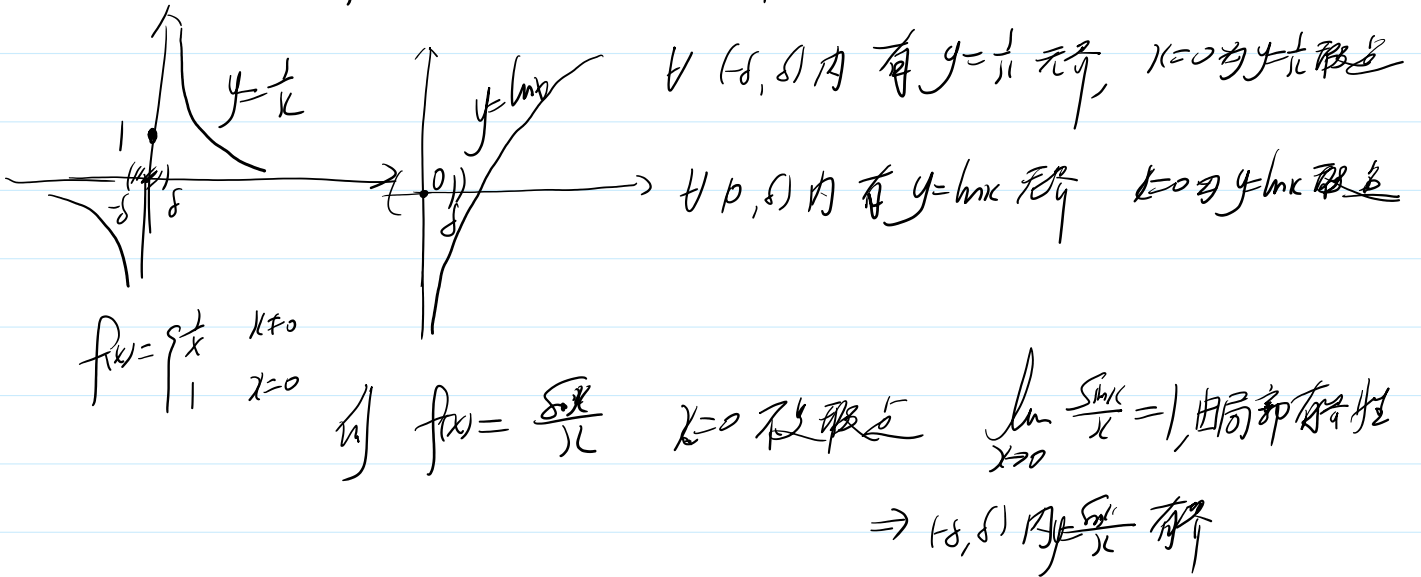 y=1/x
1
-δ δ
y=lnx
0
δ
∀ (-δ, δ) 内 有 y=1/x 无界, x=0为y=1/x 瑕点
∀ (0, δ) 内 有 y=lnx 无界 x=0为y=lnx 瑕点
f(x)= { 1/x x≠0
1 x=0
例 f(x)= sinx/x x=0 不是瑕点 lim x→0 sinx/x =1, 由局部有界性
⇒ (-δ, δ) 内y=sinx/x 有界